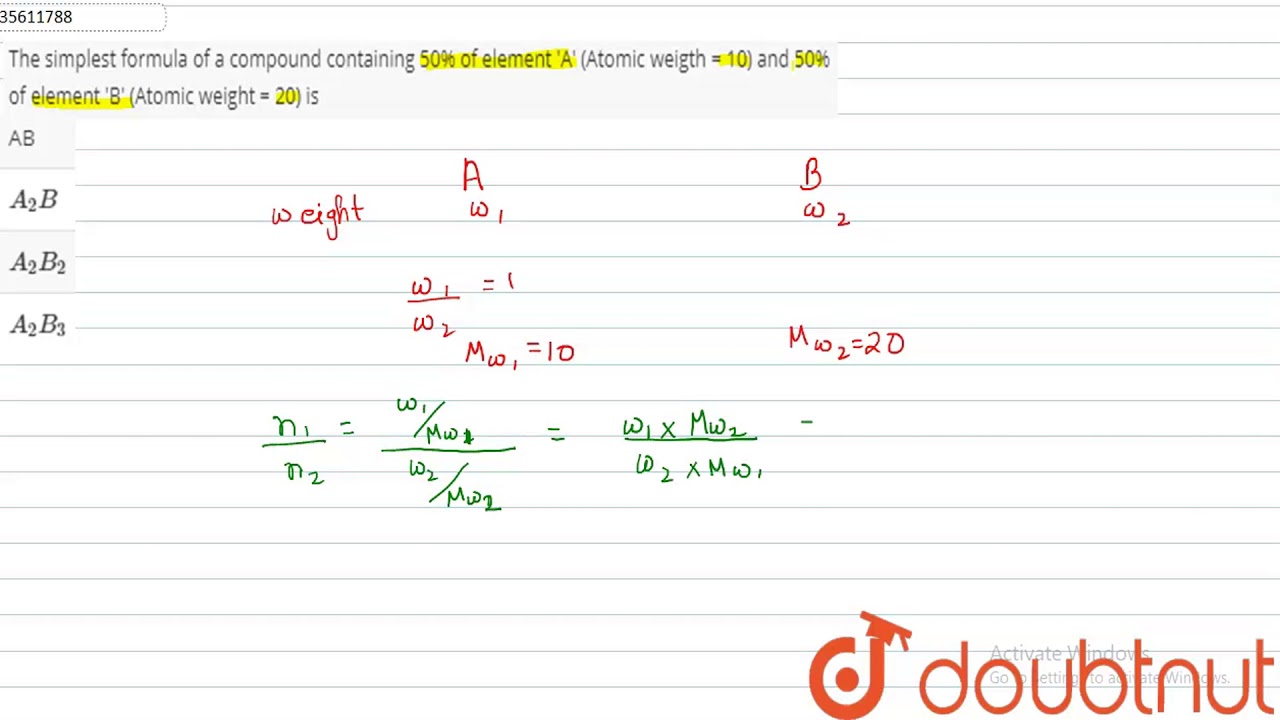 35611788
The simplest formula of a compound containing 50% of element 'A' (Atomic weigth = 10) and 50%
of element 'B' (Atomic weight = 20) is
AB
A₂B
A₂B₂
A₂B₃
A B
weight ω₁ ω₂
ω₁ = 1
ω₂
Mω₁ = 10 Mω₂ = 20
n₁ = ω₁/Mω₁ = ω₁ × Mω₂ =
n₂ ω₂/Mω₂ ω₂ × Mω₁
Activate Windows
Go to Settings to activate Windows.
doubtnut